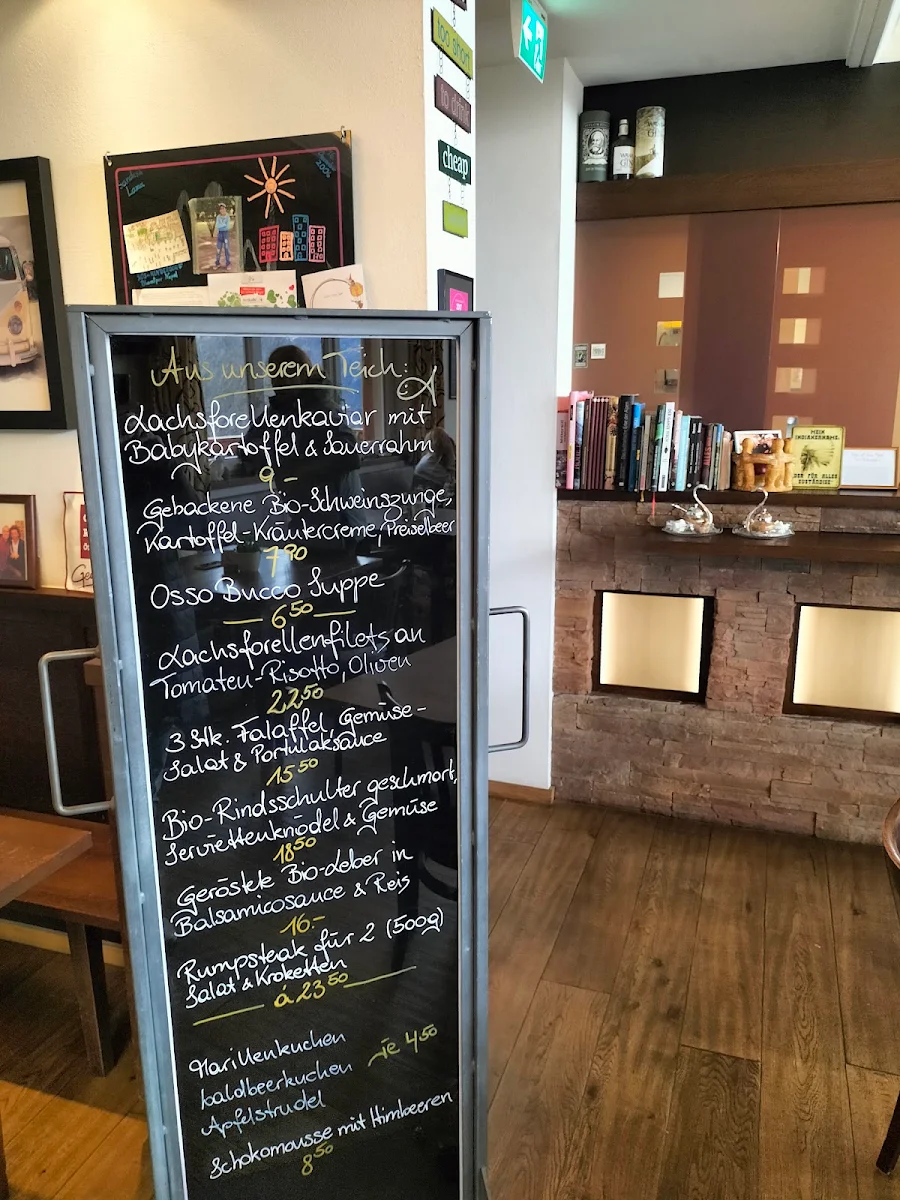 too short
to drink
cheap
Aus unserem Teich:
Lachsforellenkaviar mit
Babykartoffel & Sauerrahm
9.-
Gebackene Bio-Schweinszunge,
Kartoffel-Kräutercreme, Preiselbeer
7 90
Osso Bucco Suppe
6 50
Lachsforellenfilets an
Tomaten-Risotto, Oliven
22 50
3 Stk. Falaffel, Gemüse-
Salat & Portulaksauce
15 50
Bio-Rindsschulter geschmort,
Serviettenknödel & Gemüse
18 50
Geröstete Bio-Leber in
Balsamicosauce & Reis
16.-
Rumpsteak für 2 (500g)
Salat & Kroketten
á 23 50
Marillenkuchen
Waldbeerkuchen je 4 50
Apfelstrudel
Schokomousse mit Himbeeren
8 50
MEIN
INDIANERNAME:
DER FÜR ALLES
ZUSTÄNDIGE